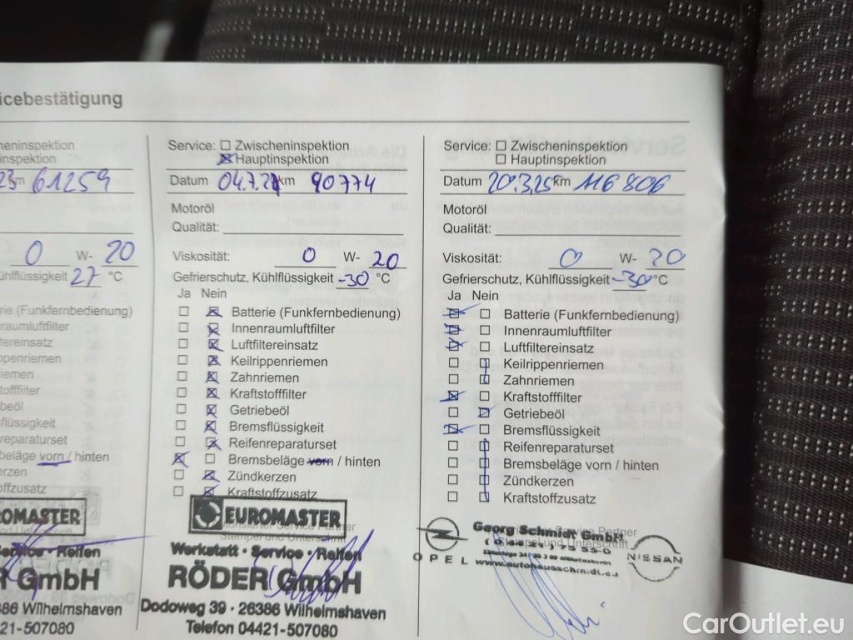 icebestätigung
eninspektion
inspektion
23 km 61259
0 W- 20
ühlflüssigkeit 27 °C
rie (Funkfernbedienung)
raumluftfilter
ltereinsatz
ppenriemen
iemen
tofffilter
beöl
flüssigkeit
nreparaturset
beläge vorn / hinten
kerzen
offzusatz
ROMASTER
Service · Reifen
GmbH
86 Wilhelmshaven
21-507080
Service: Zwischeninspektion
Hauptinspektion
Datum 04.7.24 km 90774
Motoröl
Qualität:
Viskosität: 0 W- 20
Gefrierschutz, Kühlflüssigkeit -30 °C
Ja Nein
Batterie (Funkfernbedienung)
Innenraumluftfilter
Luftfiltereinsatz
Keilrippenriemen
Zahnriemen
Kraftstofffilter
Getriebeöl
Bremsflüssigkeit
Reifenreparaturset
Bremsbeläge vorn / hinten
Zündkerzen
Kraftstoffzusatz
EUROMASTER
Werkstatt · Service · Reifen
RÖDER GmbH
Dodoweg 39 · 26386 Wilhelmshaven
Telefon 04421-507080
Service: Zwischeninspektion
Hauptinspektion
Datum 20.3.25 km 116806
Motoröl
Qualität:
Viskosität: 0 W- 20
Gefrierschutz, Kühlflüssigkeit -30 °C
Ja Nein
Batterie (Funkfernbedienung)
Innenraumluftfilter
Luftfiltereinsatz
Keilrippenriemen
Zahnriemen
Kraftstofffilter
Getriebeöl
Bremsflüssigkeit
Reifenreparaturset
Bremsbeläge vorn / hinten
Zündkerzen
Kraftstoffzusatz
Georg Schmidt GmbH
OPEL
NISSAN
www.autohausschmidt.eu
CarOutlet.eu